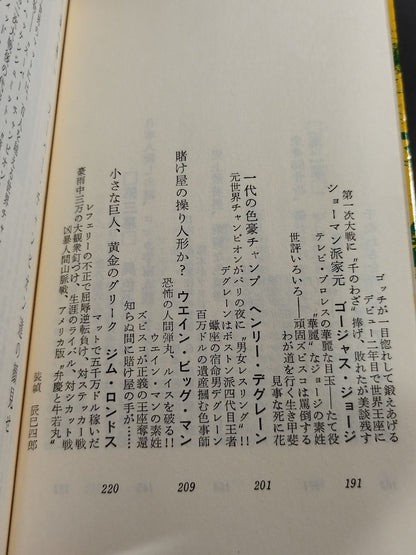 ゴッチが一目惚れして鍛えあげる
デビュー二年目で世界王座に
第一次大戦に〝千のわざ〟捧げ、敗れたが美談残す
ショーマン派家元 ゴージャス・ジョージ 191
テレビ・プロレスの華麗な目玉――たて役
〝華麗〟なジョージの素姓
世評いろいろ――頑固ズビスコは罵倒する
わが道を行く生き甲斐
見事な死に花
一代の色豪チャンプ ヘンリー・デグレーン 201
元世界チャンピオンがパリの夜に〝男女レスリング〟!!
デグレーンはボストン派四代目王者
蠍座の宿命男デグレーン
百万ドルの遺産掴む色事師
賭け屋の操り人形か? ウエイン・ビッグ・マン 209
恐怖の人間弾丸、ルイスを破る!!
ウエイン・マンの素姓
ズビスコが正義の王座奪還
知らぬ間に賭け屋の手が……
小さな巨人、黄金のグリーク ジム・ロンドス 220
マットで五千万ドル稼いだ
レフェリーの不正で屈辱逆転負け、対ステッカー戦
豪雨中、三万の大観衆釘づけ、生涯のライバル、対シカット戦
凶暴人間山脈戦、アメリカ版〝弁慶と牛若丸〟
装幀 辰巳四郎